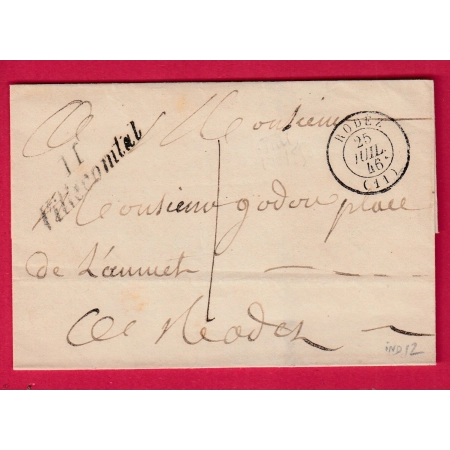 11
Villecomtal
RODEZ
25
JUIL.
46
(11)
A Monsieur
Monsieur godon place
de L'annuet
1
A Rodez
IND 12